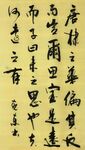 唐棣之華偏其反
而豈不爾思室是遠
而子曰未之思也夫
何遠之有